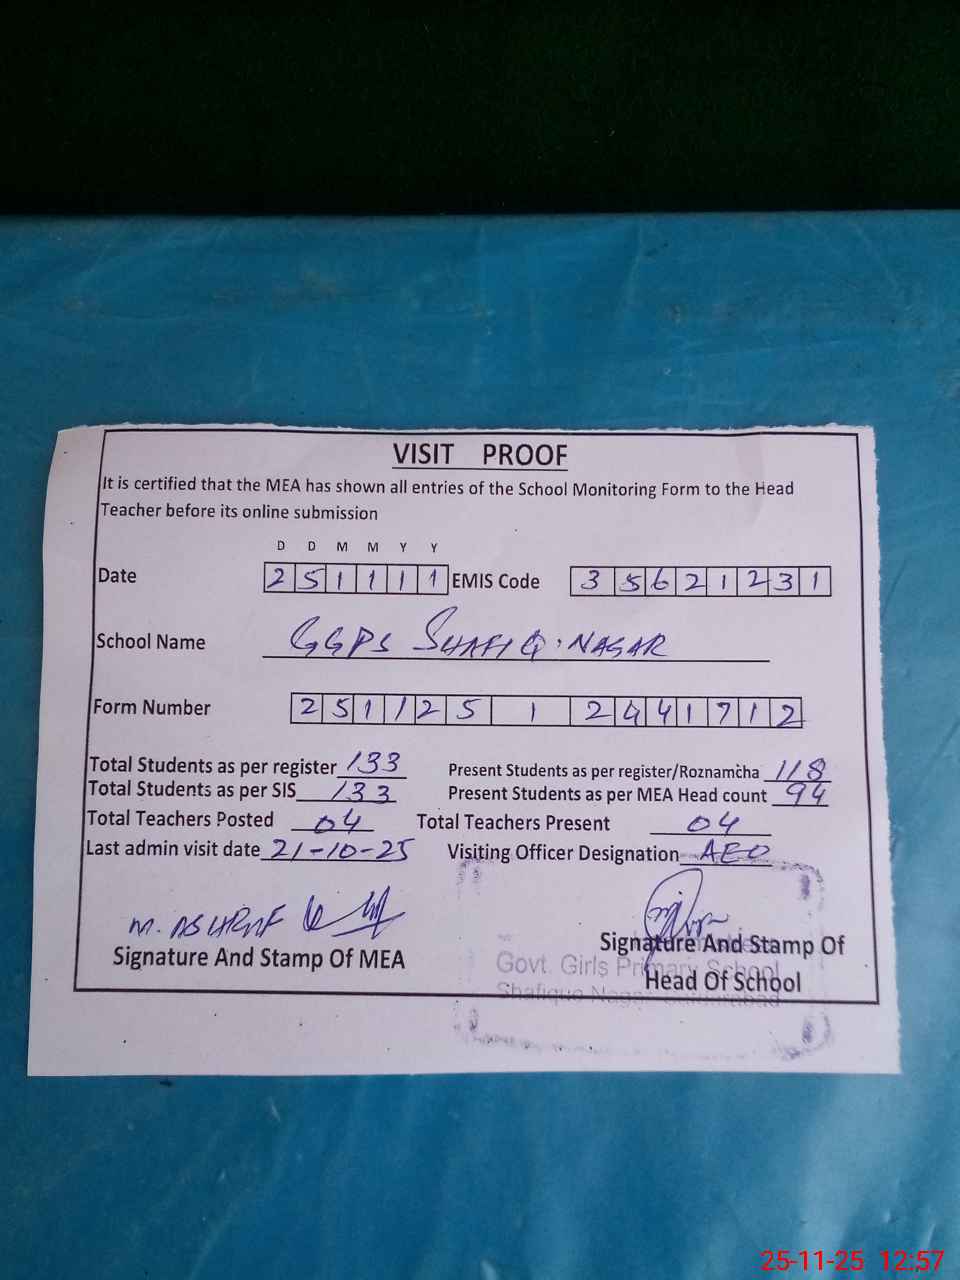 VISIT PROOF
It is certified that the MEA has shown all entries of the School Monitoring Form to the Head
Teacher before its online submission
D D M M Y Y
Date 2 5 1 1 1 1 EMIS Code 3 5 6 2 1 2 3 1
School Name GGPS SHAFIQ.NAGAR
Form Number 2 5 1 1 2 5 1 2 4 4 1 7 1 2
Total Students as per register 133 Present Students as per register/Roznamcha 118
Total Students as per SIS 133 Present Students as per MEA Head count 94
Total Teachers Posted 04 Total Teachers Present 04
Last admin visit date 21-10-25 Visiting Officer Designation AEO
M. ASHRAF
Signature And Stamp Of MEA Signature And Stamp Of
Head Of School
Govt. Girls Primary School
Shafique Nagar
25-11-25 12:57